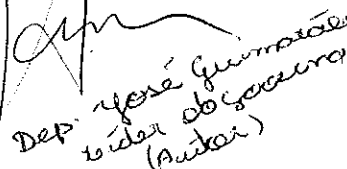 Dep. José Guimarães
Líder do governo
(Autor)